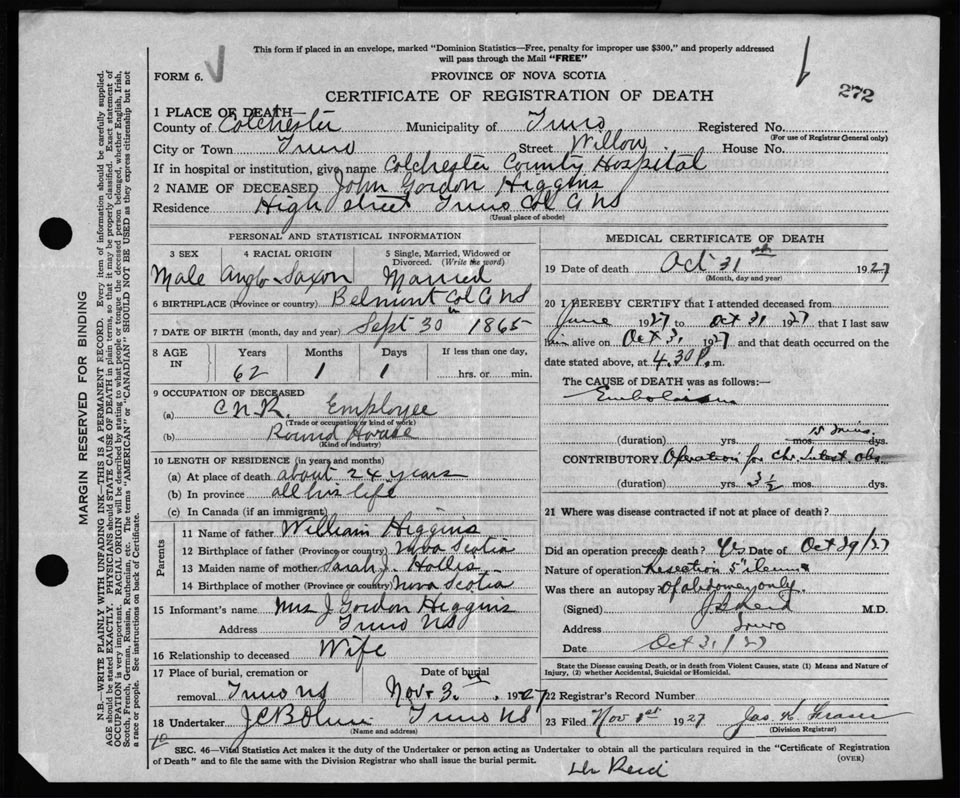 This form if placed in an envelope, marked "Dominion Statistics—Free, penalty for improper use $300," and properly addressed
will pass through the Mail "FREE"
FORM 6.
PROVINCE OF NOVA SCOTIA
272
CERTIFICATE OF REGISTRATION OF DEATH
1 PLACE OF DEATH—
County of Colchester Municipality of Truro Registered No.
(For use of Registrar General only)
City or Town Truro Street Willow. House No.
If in hospital or institution, give name Colchester County Hospital
2 NAME OF DECEASED John Gordon Higgins
Residence High street Truro Col Co NS
(Usual place of abode)
PERSONAL AND STATISTICAL INFORMATION
3 SEX 4 RACIAL ORIGIN 5 Single, Married, Widowed or Divorced. (Write the word)
Male Anglo-Saxon Married
6 BIRTHPLACE (Province or country) Belmont Col Co NS
7 DATE OF BIRTH (month, day and year) Sept 30 th 1865
8 AGE IN Years Months Days If less than one day,
62 1 1 hrs. or min.
9 OCCUPATION OF DECEASED
(a) C.N.R. Employee
(Trade or occupation or kind of work)
(b) Round House
(Kind of industry)
10 LENGTH OF RESIDENCE (in years and months)
(a) At place of death about 24 years
(b) In province all his life
(c) In Canada (if an immigrant)
Parents
11 Name of father William Higgins
12 Birthplace of father (Province or country) Nova Scotia
13 Maiden name of mother Sarah J. Hollis
14 Birthplace of mother (Province or country) Nova Scotia
15 Informant's name Mrs J Gordon Higgins
Address Truro NS
16 Relationship to deceased Wife
17 Place of burial, cremation or Date of burial
removal Truro NS Nov 3. 1927
18 Undertaker J C B Olive Truro NS
(Name and address)
MEDICAL CERTIFICATE OF DEATH
19 Date of death Oct 31 1927
(Month, day and year)
20 I HEREBY CERTIFY that I attended deceased from
June 1927 to Oct 31 1927 that I last saw
him alive on Oct 31 1927 and that death occurred on the
date stated above, at 4.30 P.m.
The CAUSE of DEATH was as follows:
Embolism
(duration) yrs. mos. 15 mins. dys.
CONTRIBUTORY Operation for Chr. Intest. Obs.
(duration) yrs. 3½ mos. dys.
21 Where was disease contracted if not at place of death?
Did an operation precede death? Yes Date of Oct 29/27
Nature of operation Resection 5" ileum
Was there an autopsy? Of abdomen only
(Signed) M.D.
Address Truro
Date Oct 31/27
State the Disease causing Death, or in death from Violent Causes, state (1) Means and Nature of
Injury, (2) whether Accidental, Suicidal or Homicidal.
22 Registrar's Record Number
23 Filed Nov 1st 1927 Jas. H. Fraser
(Division Registrar)
SEC. 46—Vital Statistics Act makes it the duty of the Undertaker or person acting as Undertaker to obtain all the particulars required in the "Certificate of Registration
of Death" and to file the same with the Division Registrar who shall issue the burial permit.
(OVER)
Dr Reid
MARGIN RESERVED FOR BINDING
N.B.—WRITE PLAINLY WITH UNFADING INK—THIS IS A PERMANENT RECORD. Every item of information should be carefully supplied.
AGE should be stated EXACTLY. PHYSICIANS should STATE CAUSE OF DEATH in plain terms, so that it may be properly classified. Exact statement of
OCCUPATION is very important. RACIAL ORIGIN will be described by stating to what people or tongue the deceased person belonged, whether English, Irish,
Scotch, French, German, Russian, Ruthenian, etc. The terms "AMERICAN" or "CANADIAN" SHOULD NOT BE USED as they express citizenship but not
a race or people. See instructions on back of Certificate.